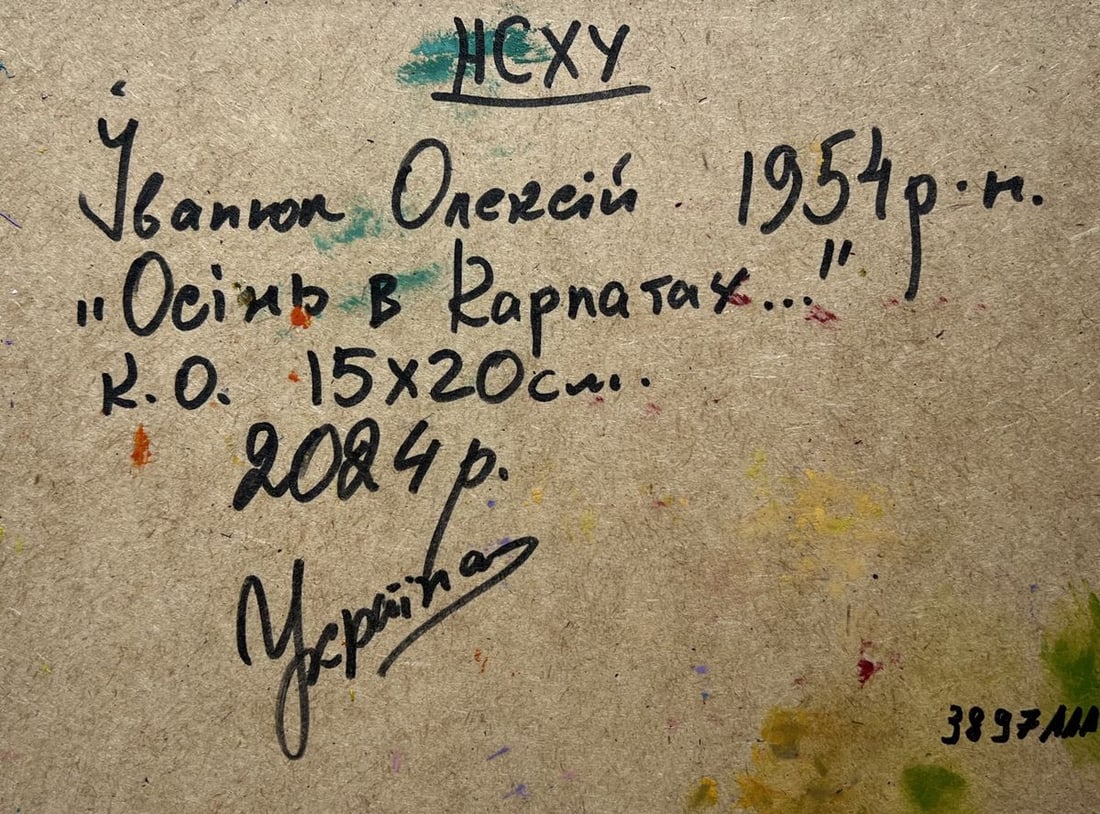 НСХУ
Іванюк Олексій 1954 р.н.
"Осінь в Карпатах..."
к.о. 15х20см.
2024 р.
Україна
3897ААА